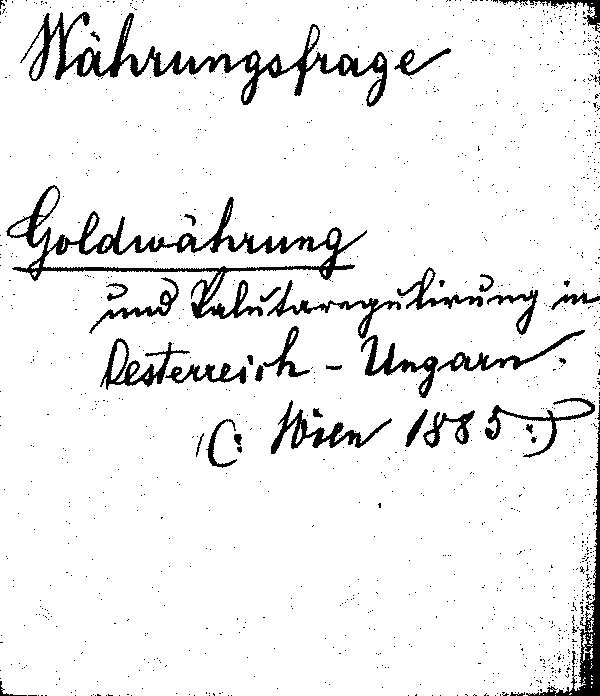 Währungsfrage
Goldwährung
und Valutaregulirung in
Oesterreich - Ungarn.
(: Wien 1885 :)